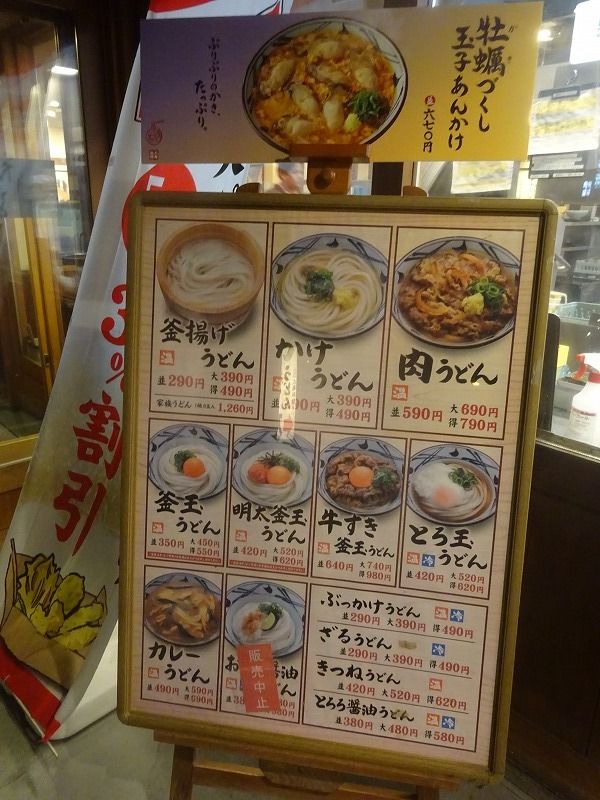 牡蠣づくし
玉子あんかけ
並六七〇円
ぷりぷりのかき、
たっぷり。
割引
釜揚げ
うどん
温
並290円
大390円
得490円
家族うどん
1,260円
かけ
うどん
大390円
得490円
肉うどん
温
並590円
大690円
得790円
釜玉
うどん
温
並350円
大450円
得550円
明太釜玉
うどん
温
並420円
大520円
得620円
牛すき
釜玉うどん
温
並640円
大740円
得980円
とろ玉
うどん
温 冷
並420円
大520円
得620円
カレー
うどん
温
並490円
大590円
得690円
販売中止
ぶっかけうどん 温 冷
並290円 大390円 得490円
ざるうどん 冷
並290円 大390円 得490円
きつねうどん 温
並420円 大520円 得620円
とろろ醤油うどん 温 冷
並380円 大480円 得580円